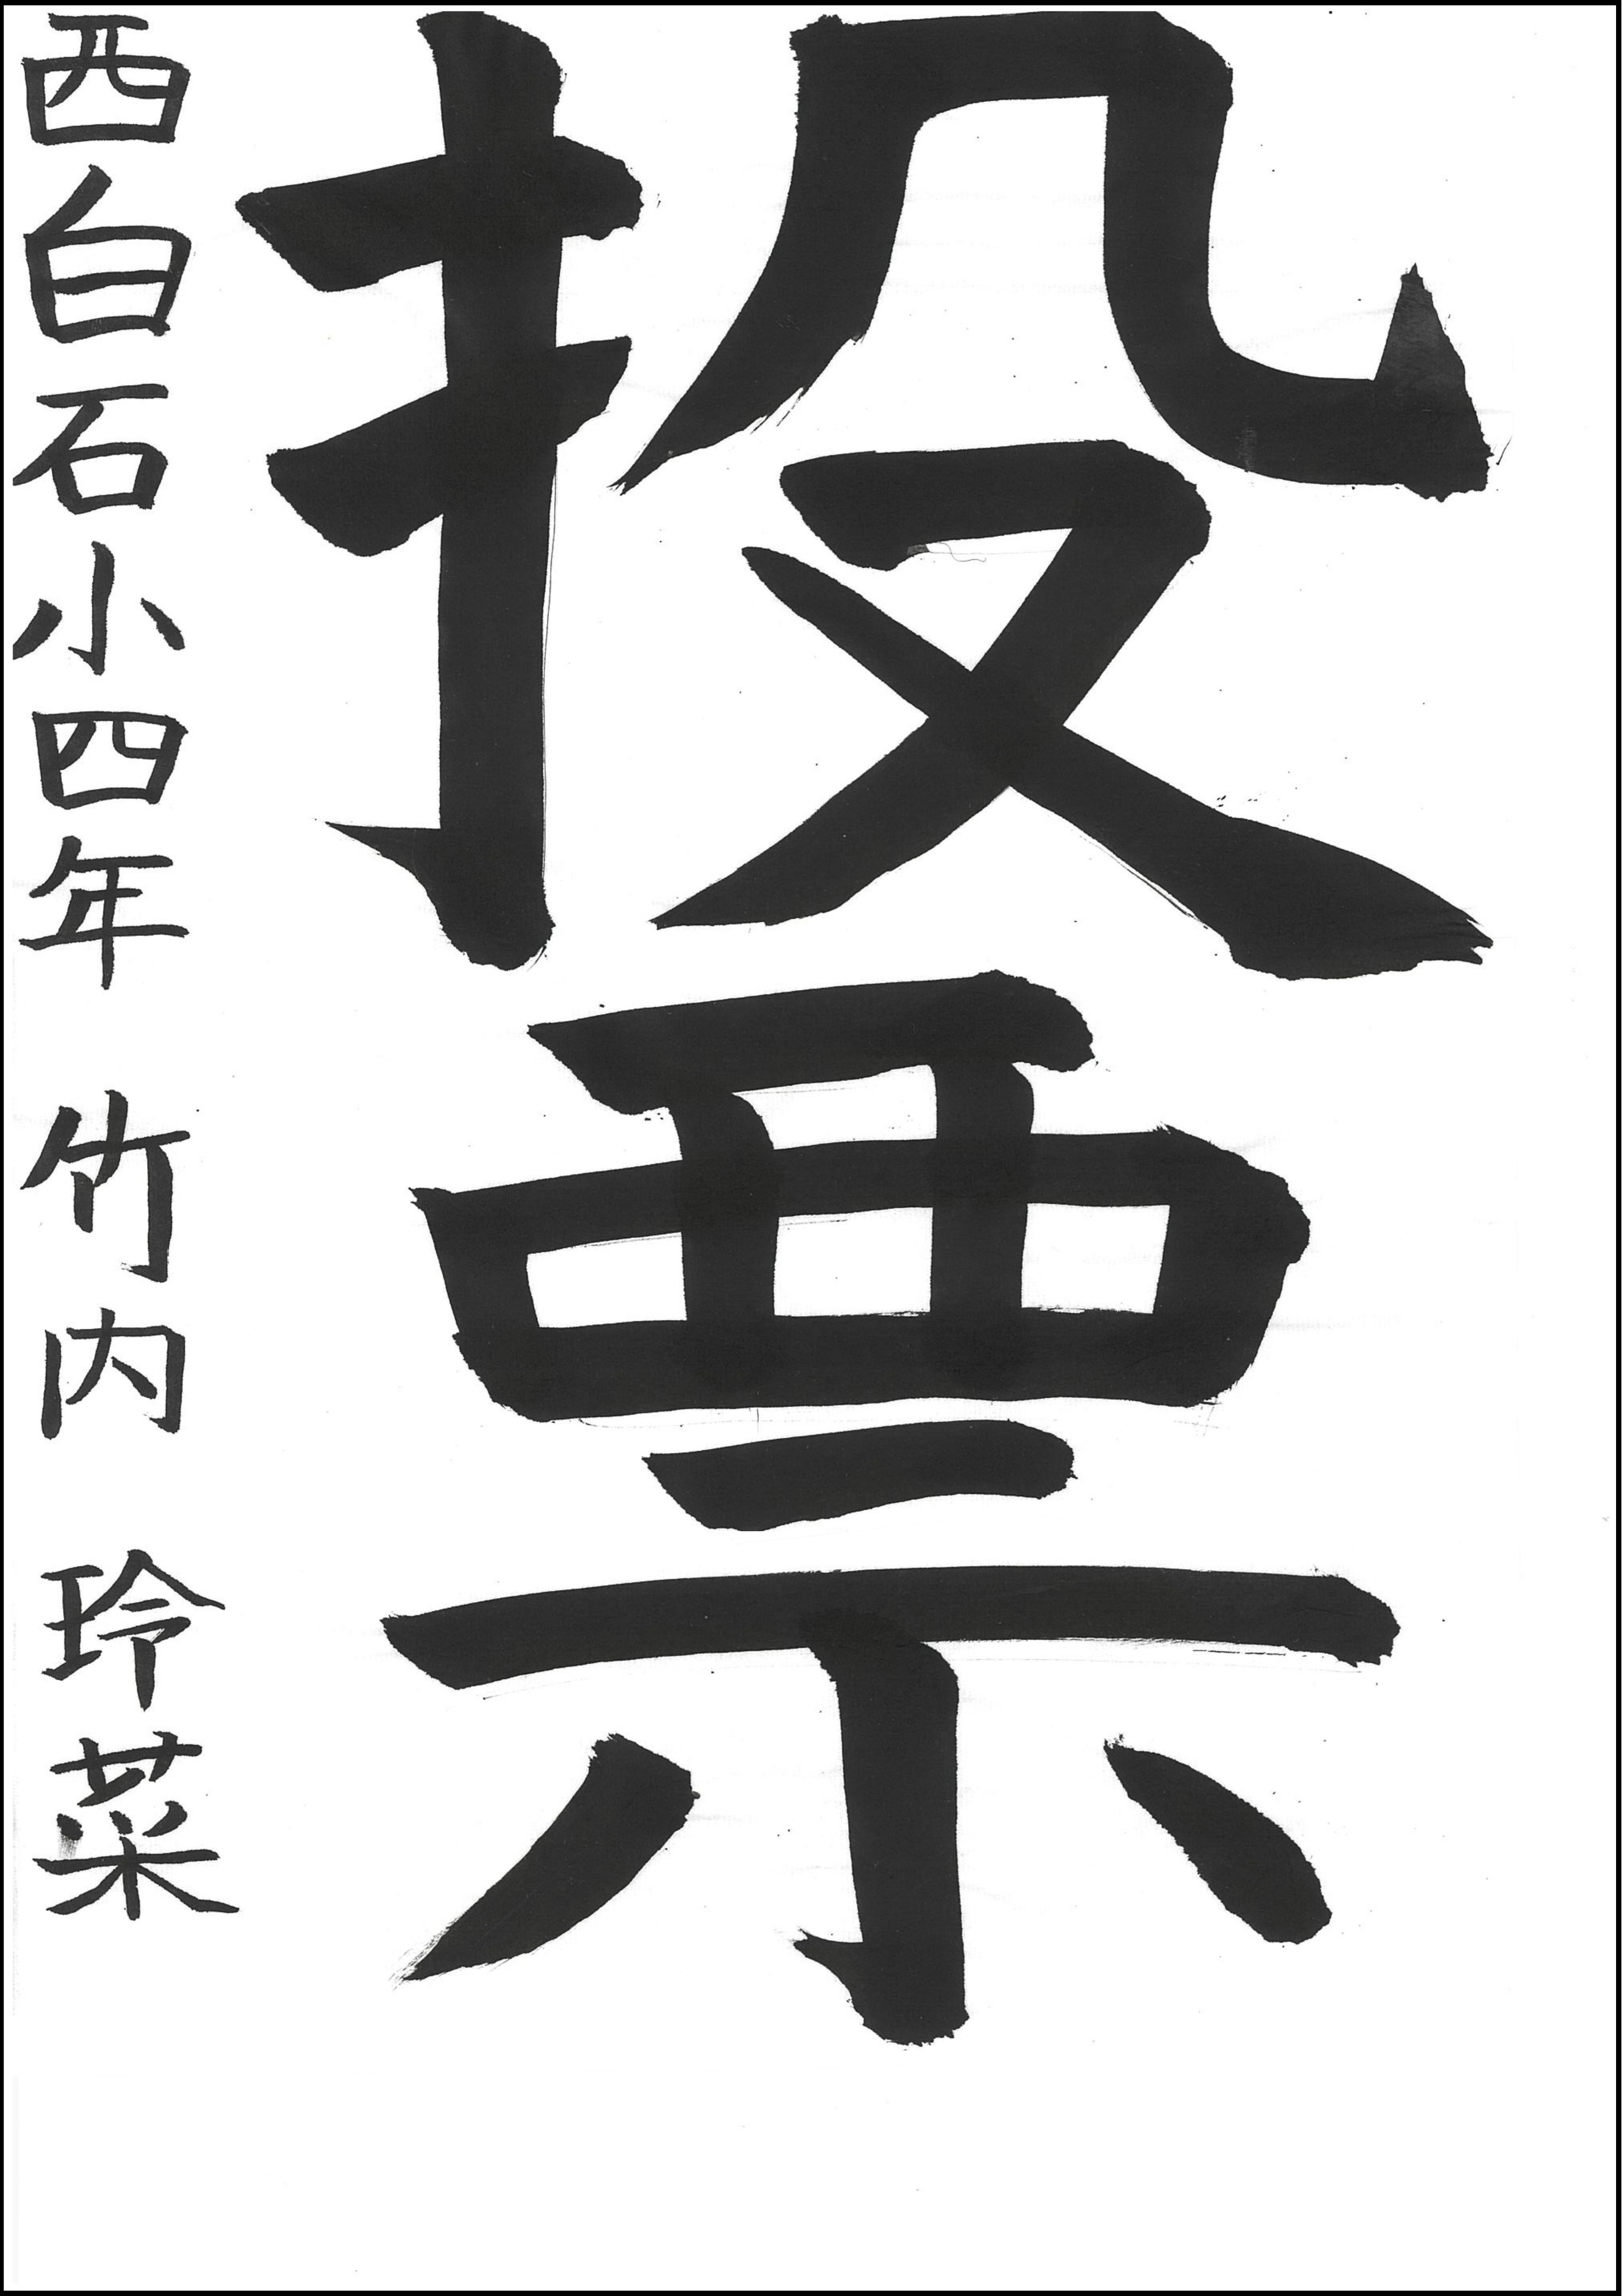 投票
西白石小四年 竹内 玲菜